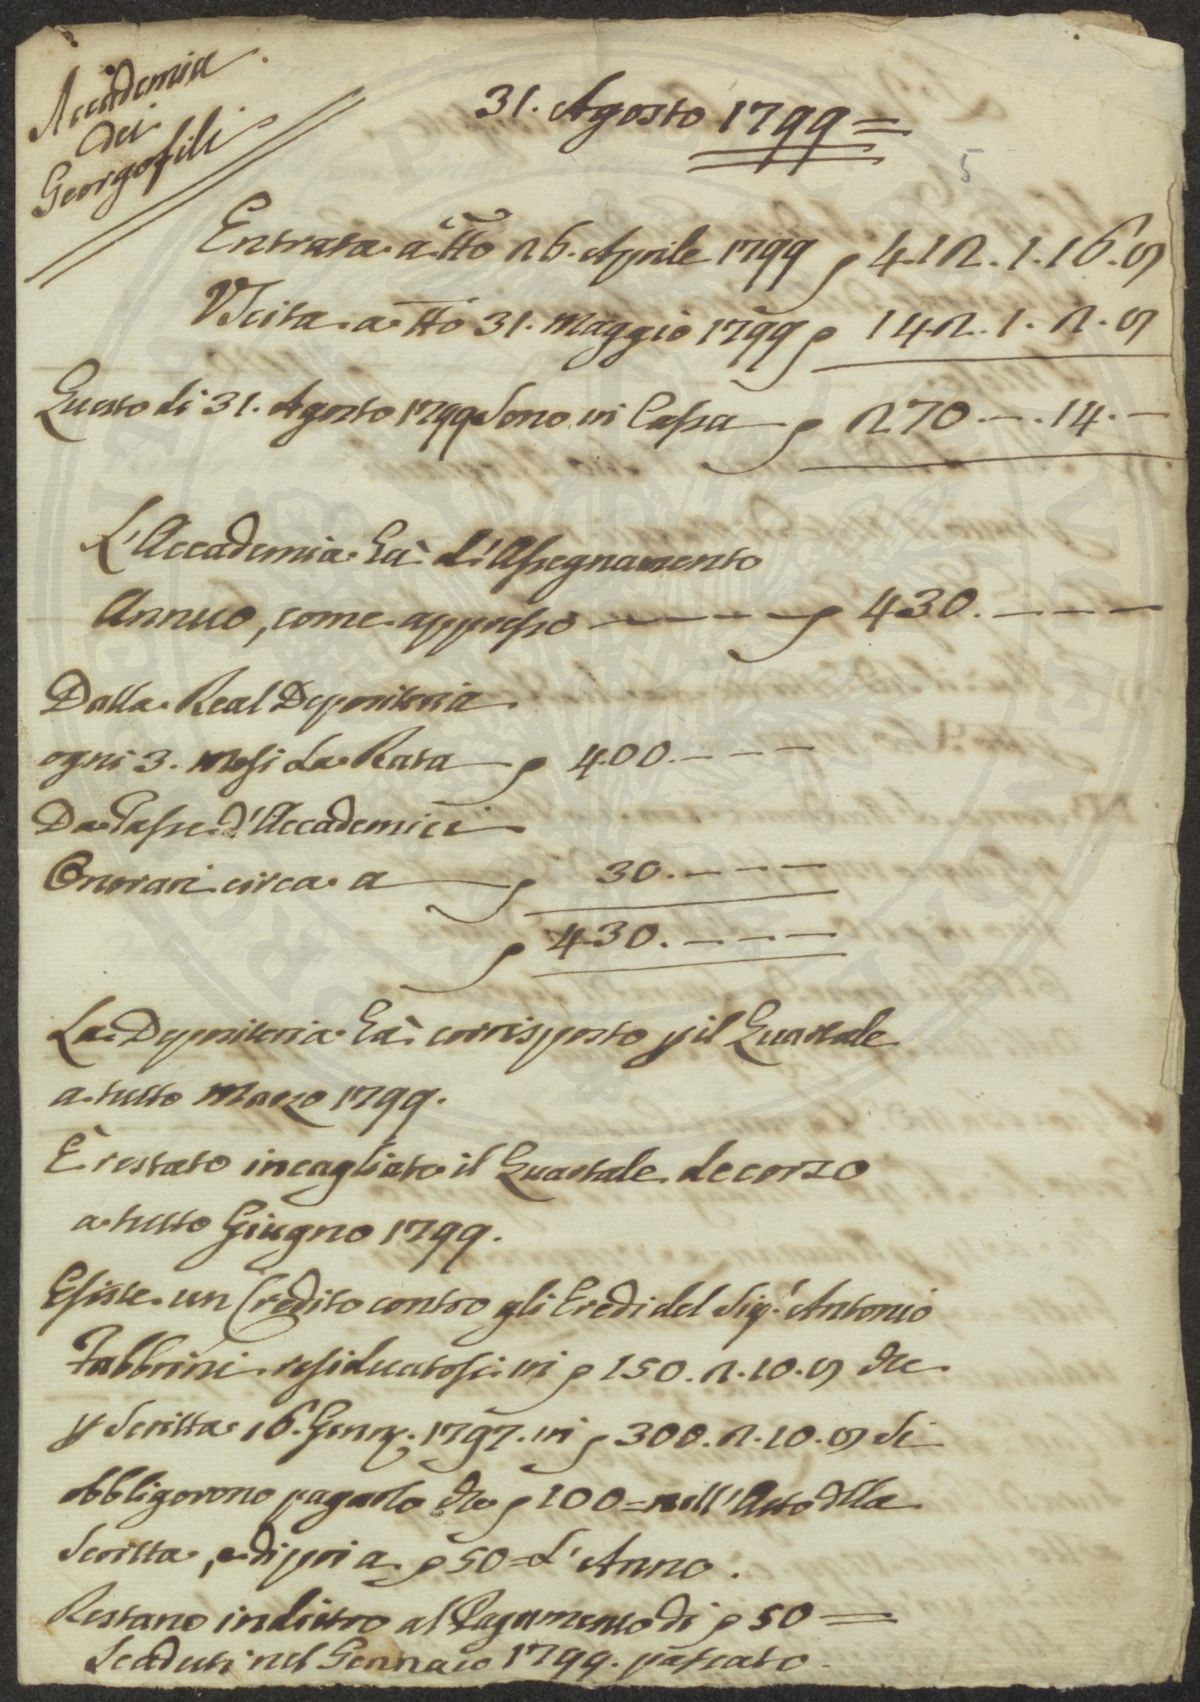 Accademia
dei
Georgofili
31. Agosto 1799=
5
Entrata a tto 26. Aprile 1799 412. 1. 16. 9
Uscita a tto 31. Maggio 1799 142. 1. 2. 9
Questo dì 31. Agosto 1799 Sono in Cassa 270 — . 14. —
L'Accademia hà d'Assegnamento
Annuo, come appresso — — — — 430. — — —
Dalla Real Depositeria
ogni 3. Mesi La Rata — 400. — — —
Da Tasse d'Accademici
Onorari circa a — 30. — — —
430. — — —
La Depositeria hà corrisposto p il Quartale
a tutto Marzo 1799.
È restato incagliato il Quartale decorso
a tutto Giugno 1799.
Esiste un Credito contro gli Eredi del Sig.r Antonio
Fabbrini residuatosi in 150. 2. 10. 9 che
p Scritta 16. Genn. 1797. in 300. 2. 10. 9 si
obbligorono pagarlo cio 100 = nell'Atto della
Scritta, e di poi a 50 = L'Anno.
Restano indietro al Pagamento di 50 =
Scaduti nel Gennaio 1799. passato.